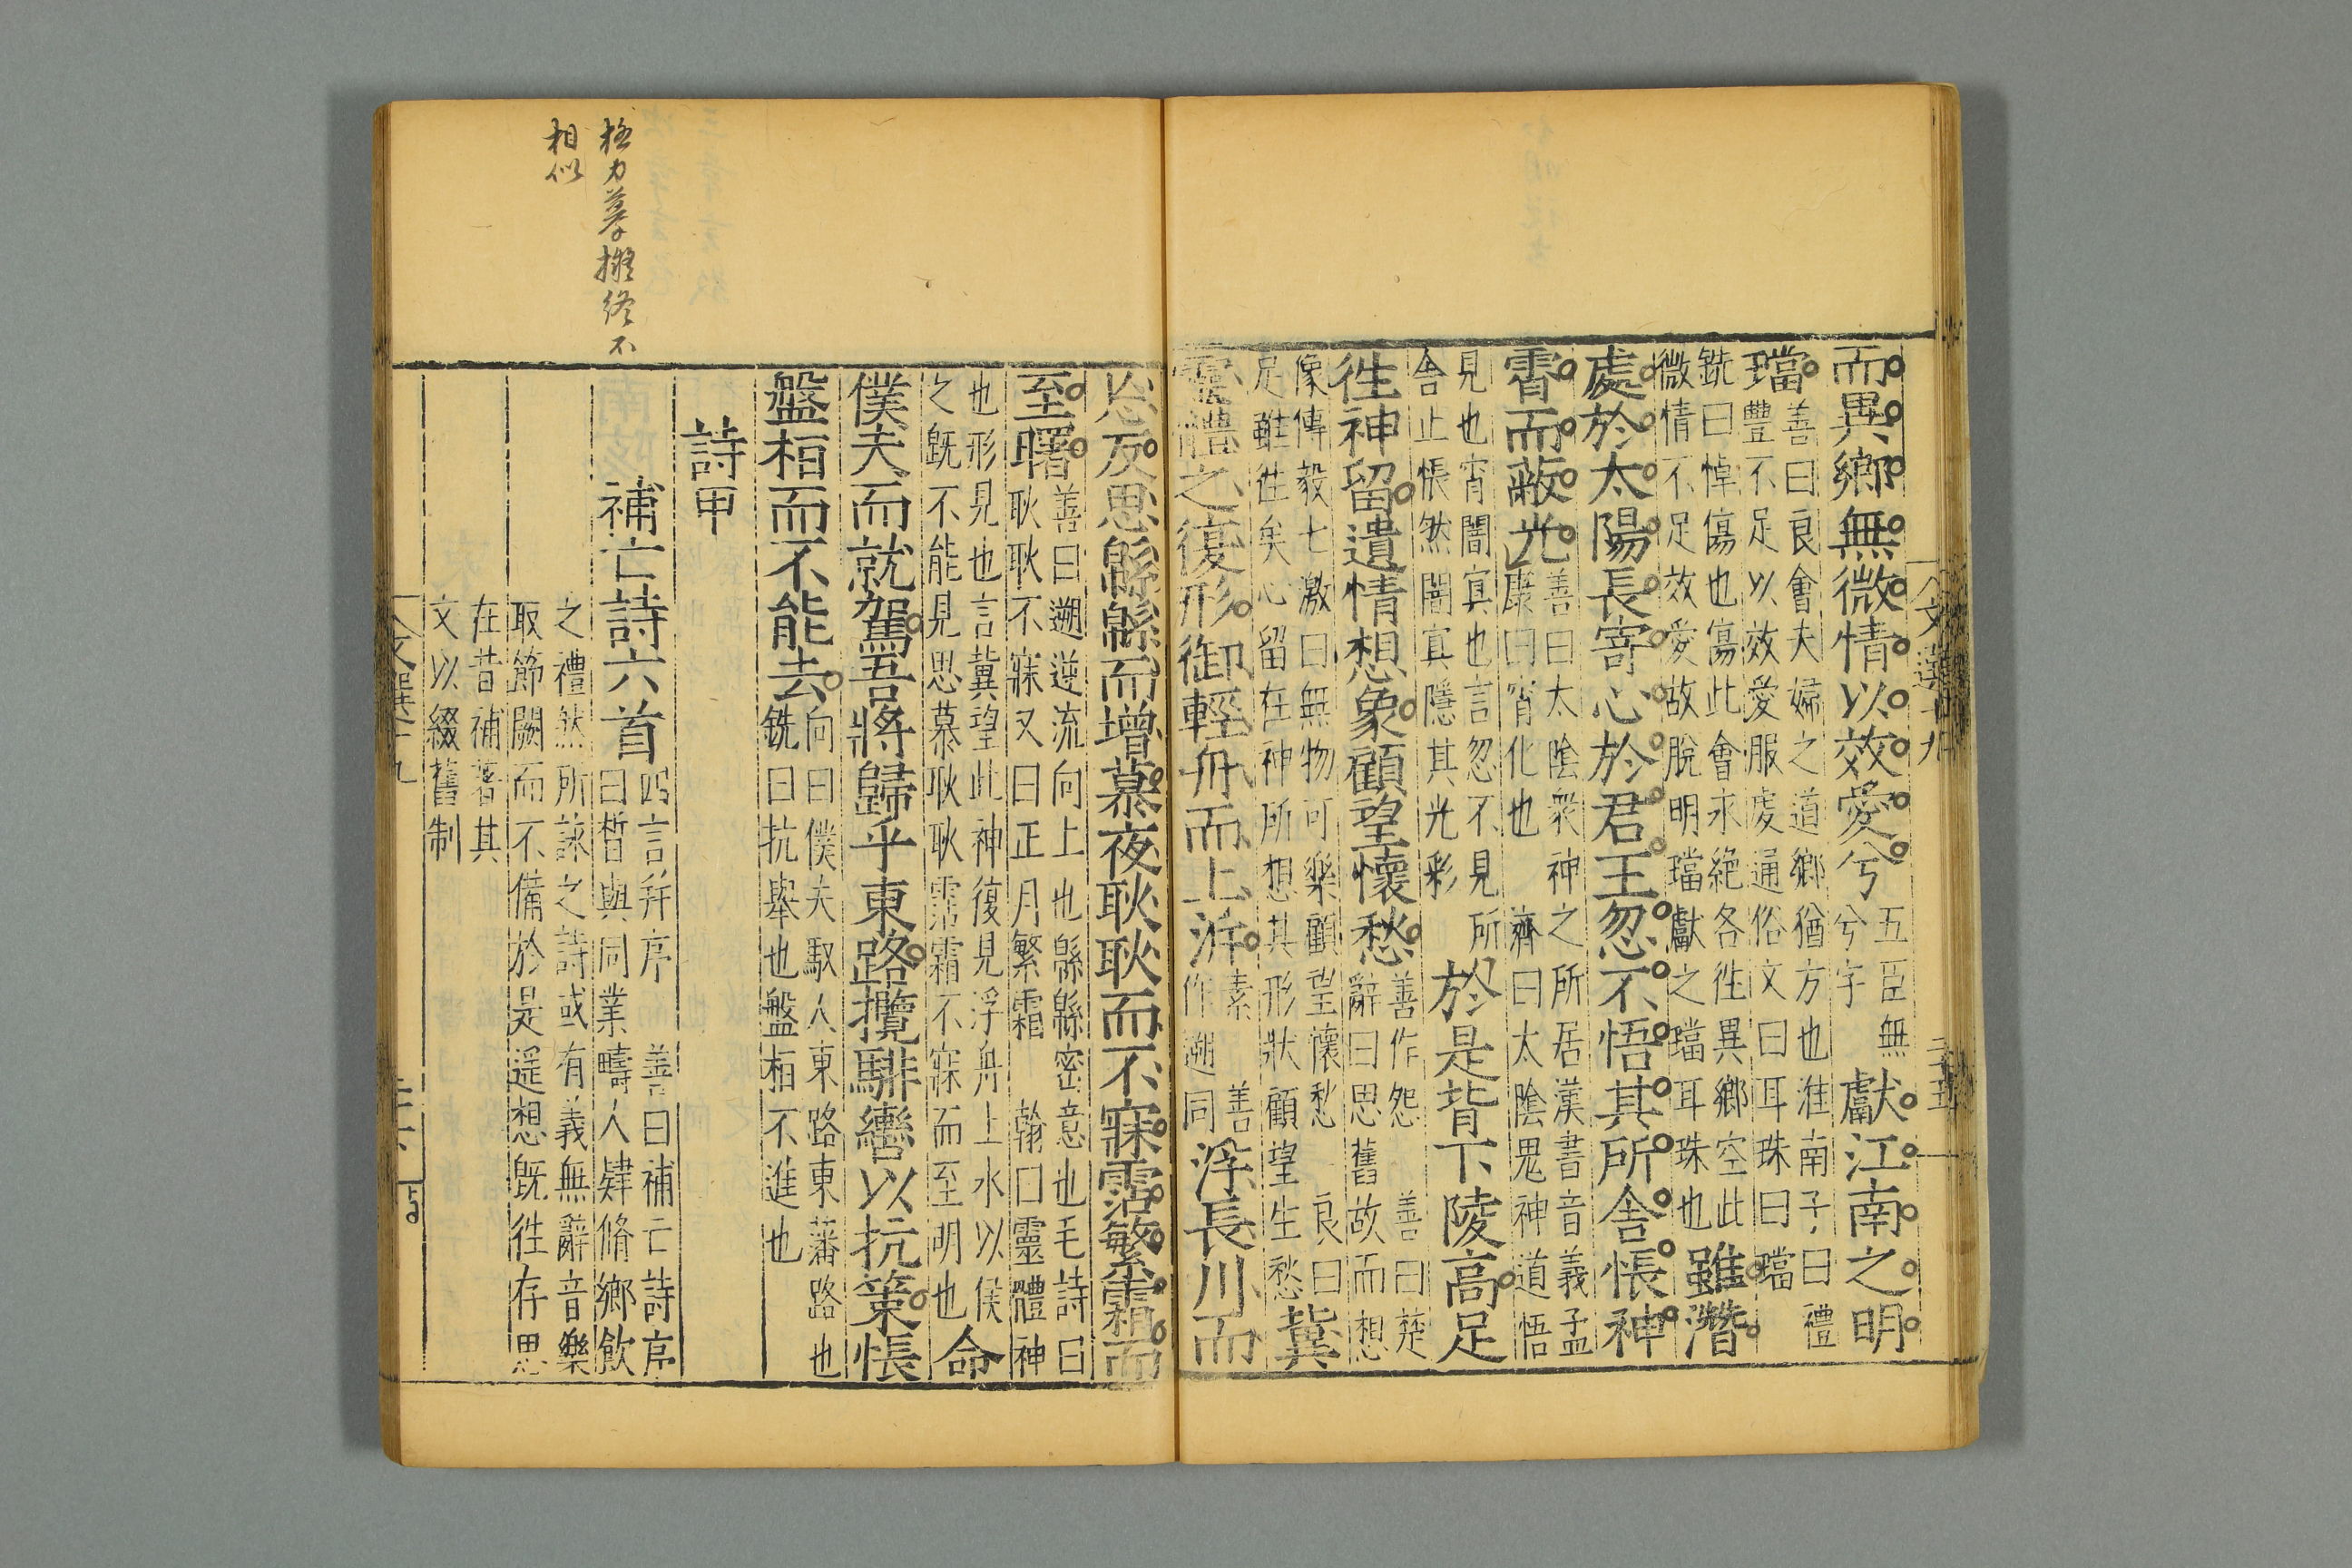 而異鄉無微情以效愛兮
五臣無
兮字
獻江南之明
璫
善曰良會夫婦之道鄉猶方也淮南子曰禮
豐不足以效愛服虔通俗文曰耳珠曰璫
銑曰悼傷也傷此會永絕各徃異鄉空此
微情不足效愛故脫明璫獻之璫耳珠也
雖潛
處於太陽長寄心於君王忽不悟其所舍悵神
霄而蔽光
善曰太陰衆神之所居漢書音義孟
康曰宵化也 濟曰太陰鬼神道悟
見也宵闇寘也言忽不見所
舍止悵然闇寘隱其光彩
於是背下陵高足
徃神留遺情想象顧望懷愁
善作怨 善曰楚
辭曰思舊故而想
像傅毅七激曰無物可樂顧望懷愁 良曰
足雖徃矣心留在神所想其形狀顧望生愁
冀
靈體之復形御輕舟而上泝
素 善
作遡同
浮長川而
忘反思緜緜而增慕夜耿耿而不寐霑繁霜而
至曙
善曰遡逆流向上也緜緜密意也毛詩曰
耿耿不寐又曰正月繁霜 翰曰靈體神
也形見也言冀望此神復見浮舟上水以候
之旣不能見思慕耿耿霑霜不寐而至明也
命
僕夫而就駕吾將歸乎東路攬騑轡以抗策悵
盤桓而不能去
向曰僕夫馭人東路東藩路也
銑曰抗舉也盤桓不進也
詩甲
補亡詩六首
四言并序 善曰補亡詩序
曰晳與同業疇人肄脩鄉飲
之禮然所詠之詩或有義無辭音樂
取節闕而不備於是遥想旣徃存思
在昔補著其
文以綴舊制
文選十九
極力摹擬終不
相似